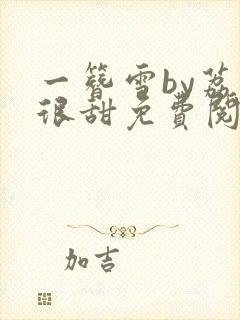 一簪雪by荔
很甜免費閱
加吉